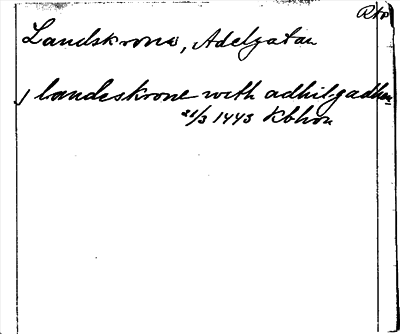 Landskrona, Adelgatan
j landeskrone with adhilgadhen
21/3 1443 Kbhvn